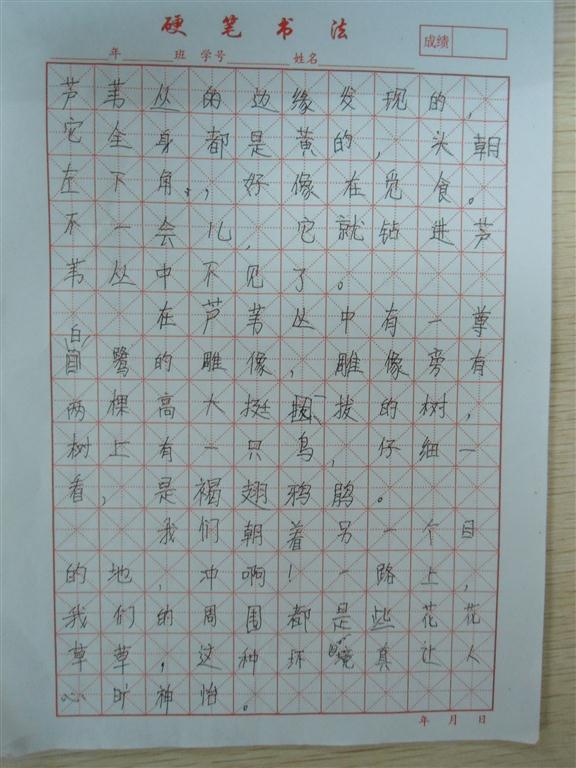 硬笔书法
成绩
年 班 学号 姓名
芦苇丛的边缘发现的，
它全身都是黄的，头朝
左下角，好像在觅食。
不一会儿，它就钻进芦
苇丛中不见了。
在芦苇丛中有一尊
白鹭的雕像，雕像旁有
两棵高大挺拔的树，
树上有一只鸟，仔细一
看，是褐翅鸦鹃。
我们朝着另一个目
的地，冲啊！一路上，
我们的周围都是些花花
草草，这种环境真让人
心旷神怡。
年 月 日